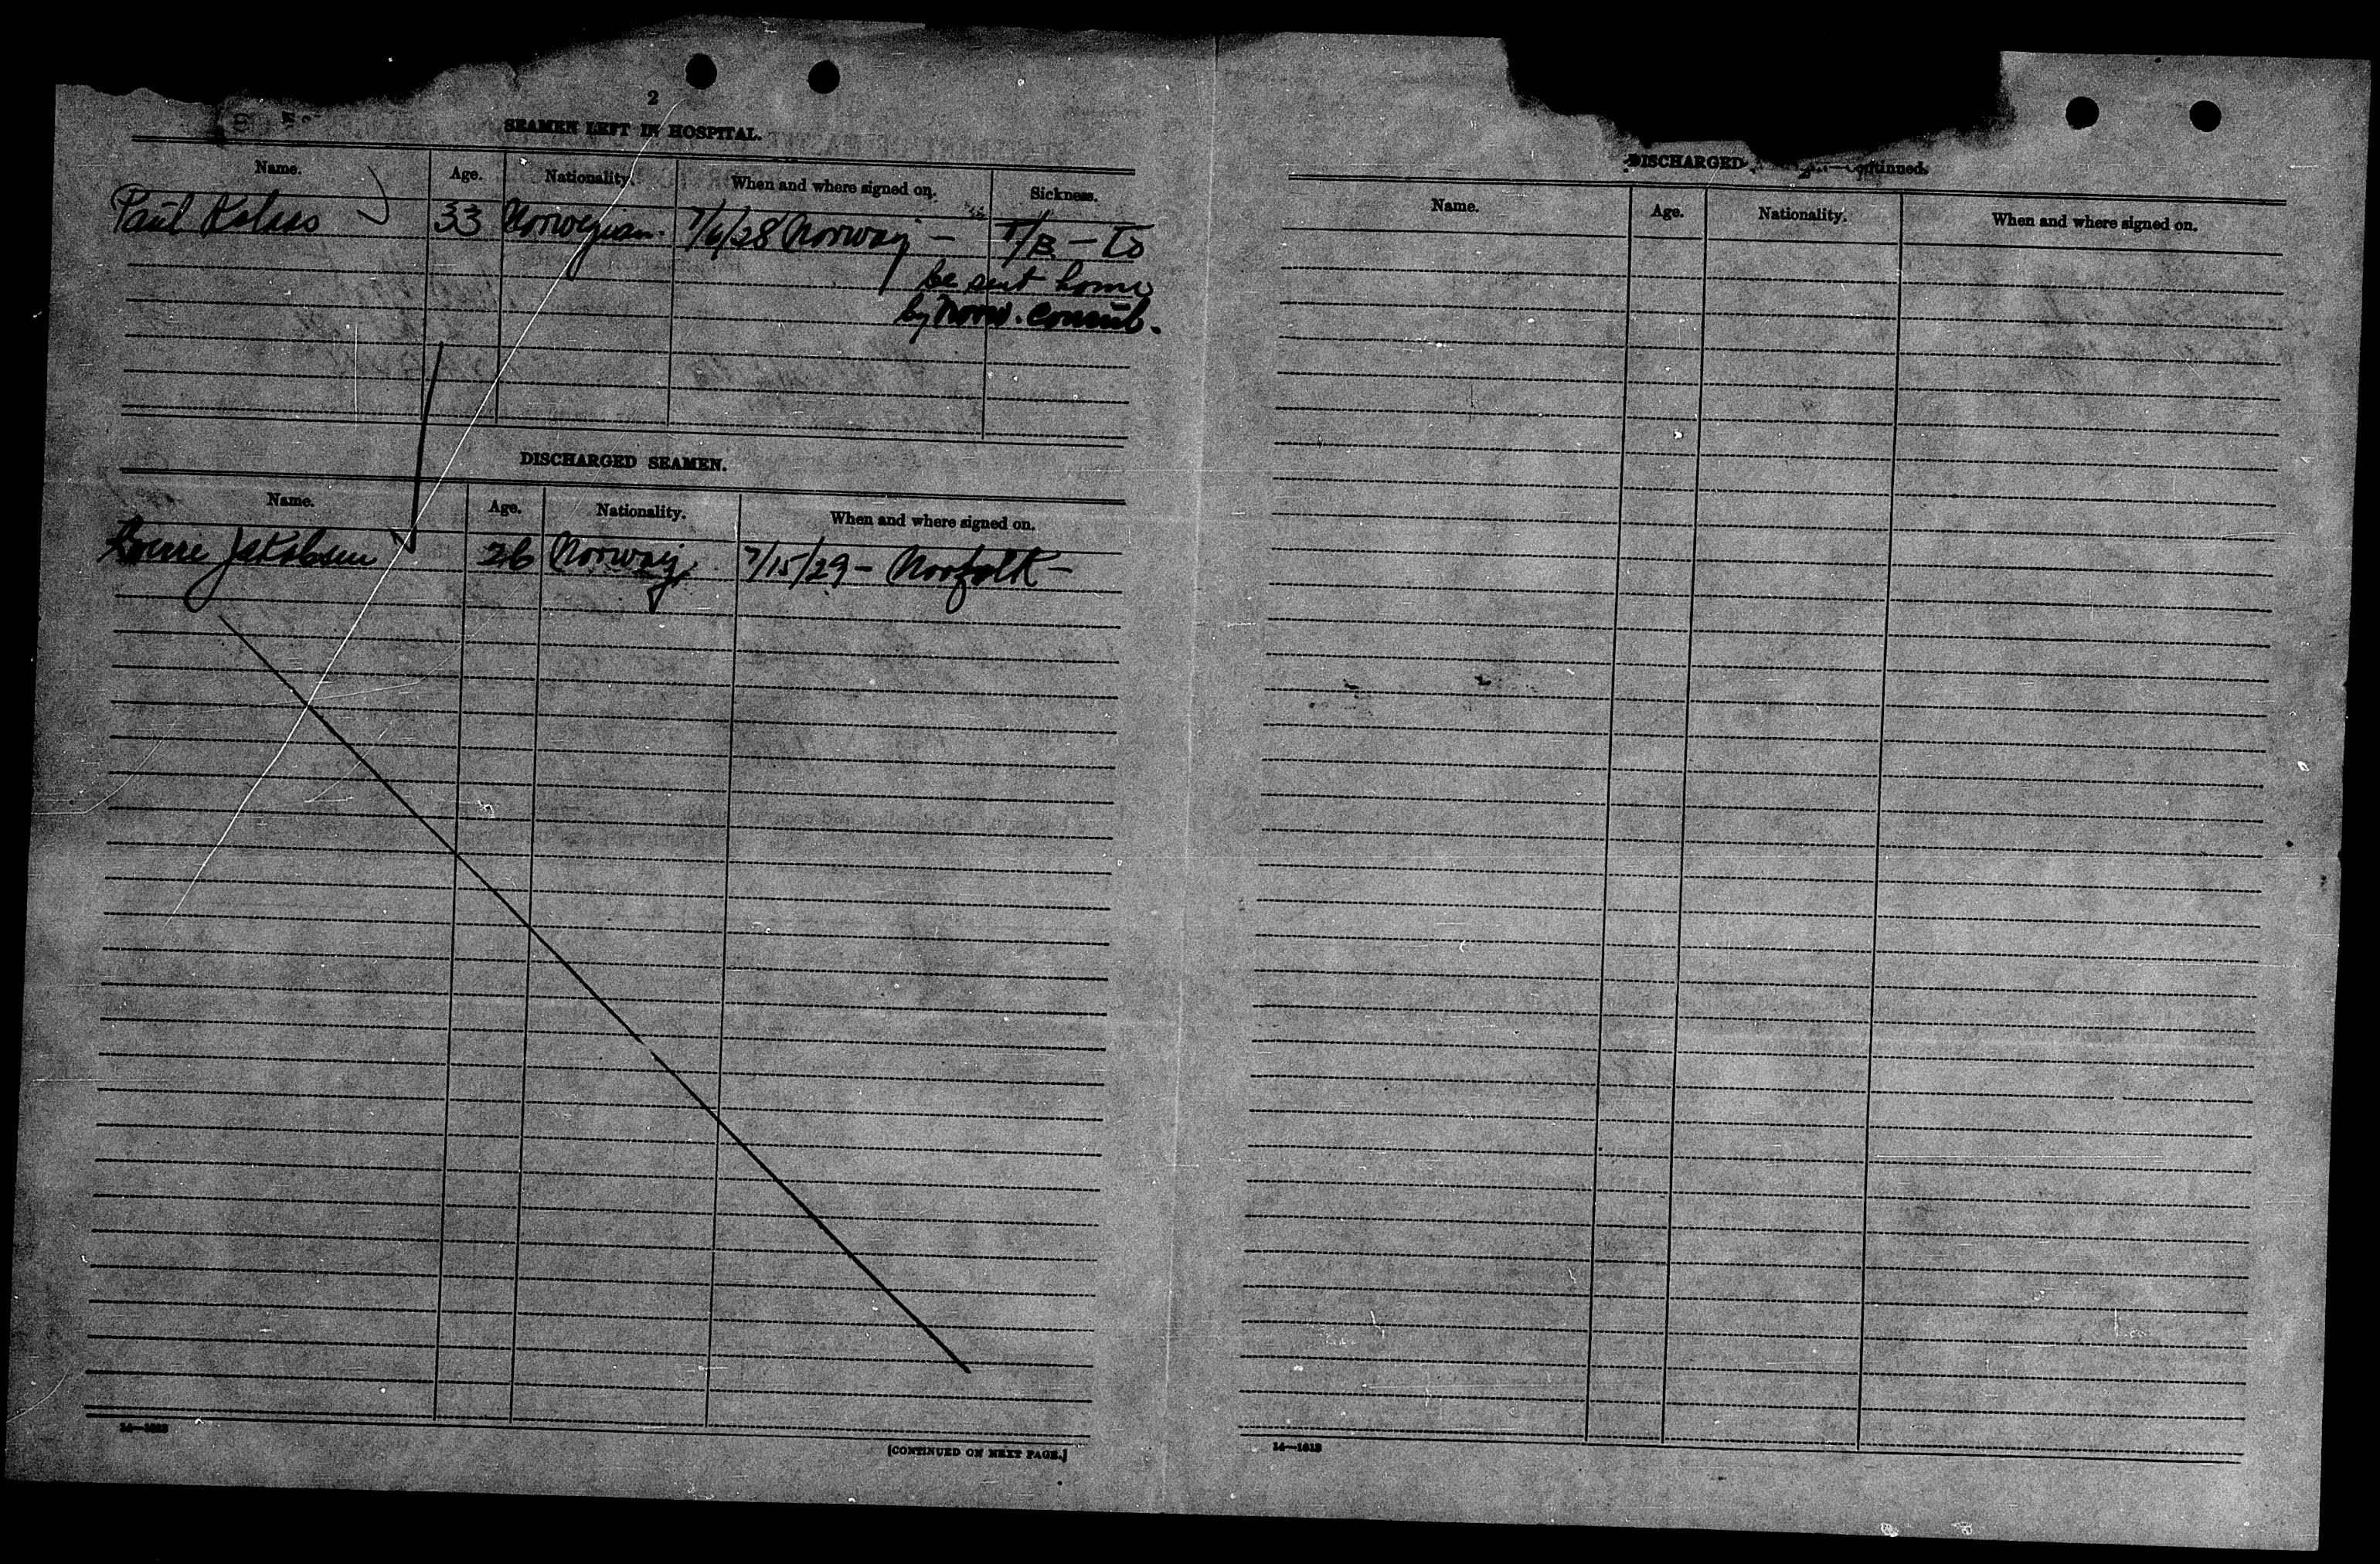 2
SEAMEN LEFT IN HOSPITAL.
Name. Age. Nationality. When and where signed on. Sickness.
Paul 33 Norwegian. 7/6/28 Norway — T/B — to
be sent home
by Norw. Consul.
DISCHARGED SEAMEN.
Name. Age. Nationality. When and where signed on.
Jakobsen 26 Norway 7/15/29 — Norfolk —
[CONTINUED ON NEXT PAGE.]
DISCHARGED continued.
Name. Age. Nationality. When and where signed on.
14—1613